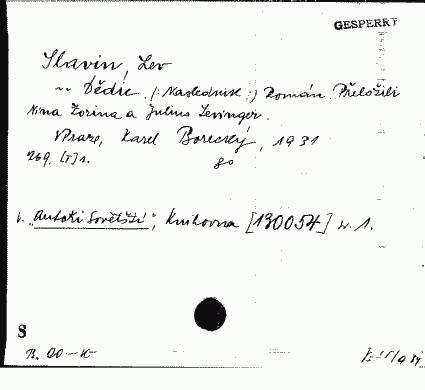 GESPERRT
Slavin, Lev
~ Dědic. (: Naslednik :) Román. Přeložili
Nina Zorina a Julius Levinger.
V Praze, Karel Borecký, 1931
269, [I] s. 8o
v. "Autoři Sovětští", Knihovna [130054] sv. 1.
S